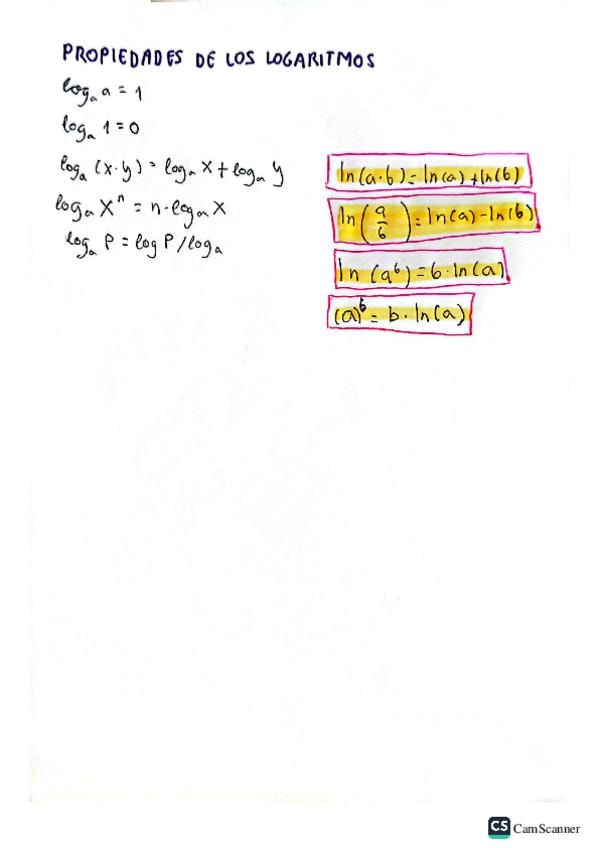 PROPIEDADES DE LOS LOGARITMOS
logₐ a = 1
logₐ 1 = 0
logₐ (x·y) = logₐ x + logₐ y
logₐ xⁿ = n·logₐ x
logₐ P = log P / logₐ
ln(a·b) = ln(a) + ln(b)
ln(a/b) = ln(a) - ln(b)
ln(aᵇ) = b·ln(a)
(a)ᵇ = b·ln(a)
CS CamScanner